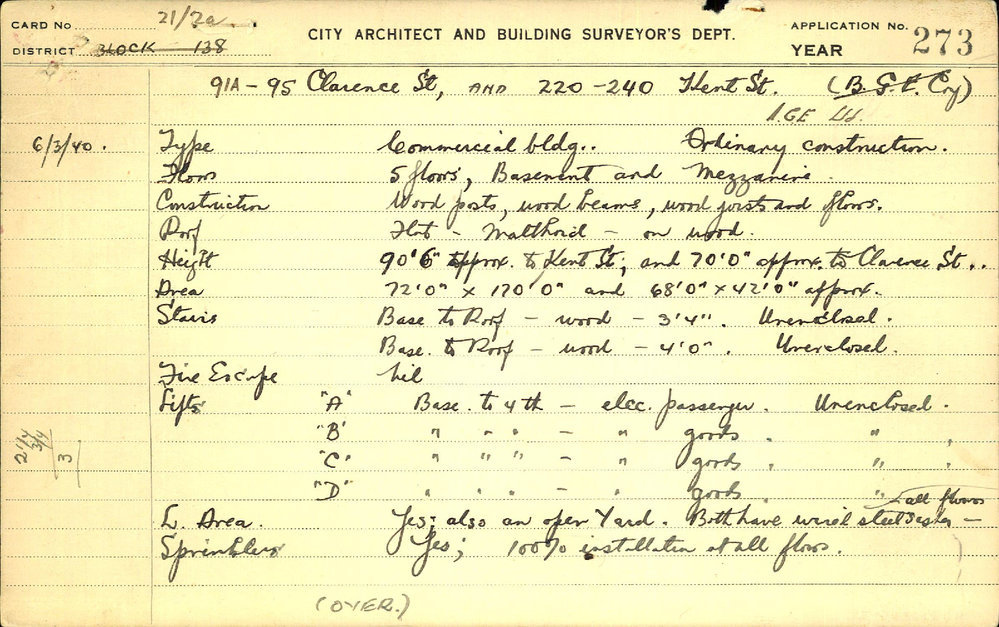 CARD No 21/2a
CITY ARCHITECT AND BUILDING SURVEYOR'S DEPT.
APPLICATION No. 273
DISTRICT BLOCK 138
YEAR
91A-95 Clarence St, AND 220-240 Kent St. (B.G.E. Coy)
6/3/40. Type Commercial bldg.. Ordinary construction.
Floors 5 floors, Basement and Mezzanine.
Construction Wood posts, wood beams, wood joists and floors.
Roof Flat - Malthoid - on wood.
Height 90'6" approx. to Kent St, and 70'0" approx. to Clarence St..
Area 72'0" x 170'0" and 68'0" x 42'0" approx.
Stairs Base to Roof - wood - 3'4". Unenclosed.
Base. to Roof - wood - 4'0". Unenclosed.
Fire Escape Nil
Lifts "A" Base. to 4th - elec. passenger. Unenclosed.
"B" " " " - " goods. " .
"C" " " " - " goods. " .
"D" " " " - " goods. "
all floors
L. Area. Yes; also an open Yard. Both have wired steel sashes -
Sprinklers Yes; 100% installation at all floors.
(OVER.)